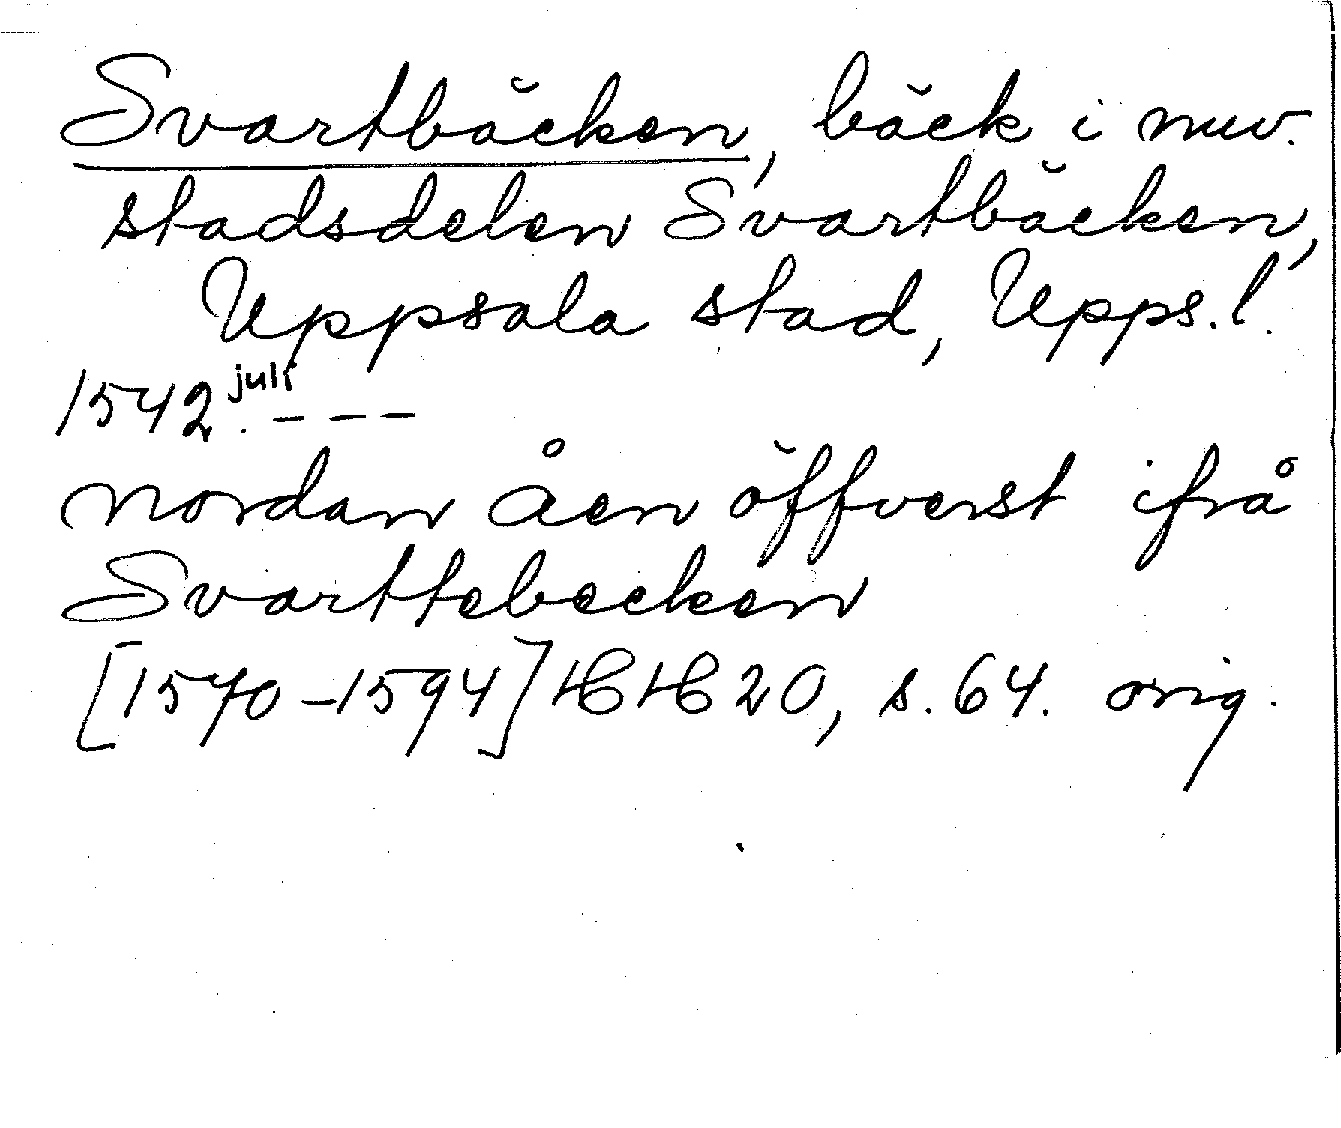 Svartbäcken, bäck i nuv.
stadsdelen Svartbäcken,
Uppsala stad, Upps. l.
1542 juli. – – –
nordan åen öffverst ifrå
Svarttebecken
[1570–1594] HH 20, s. 64. orig.